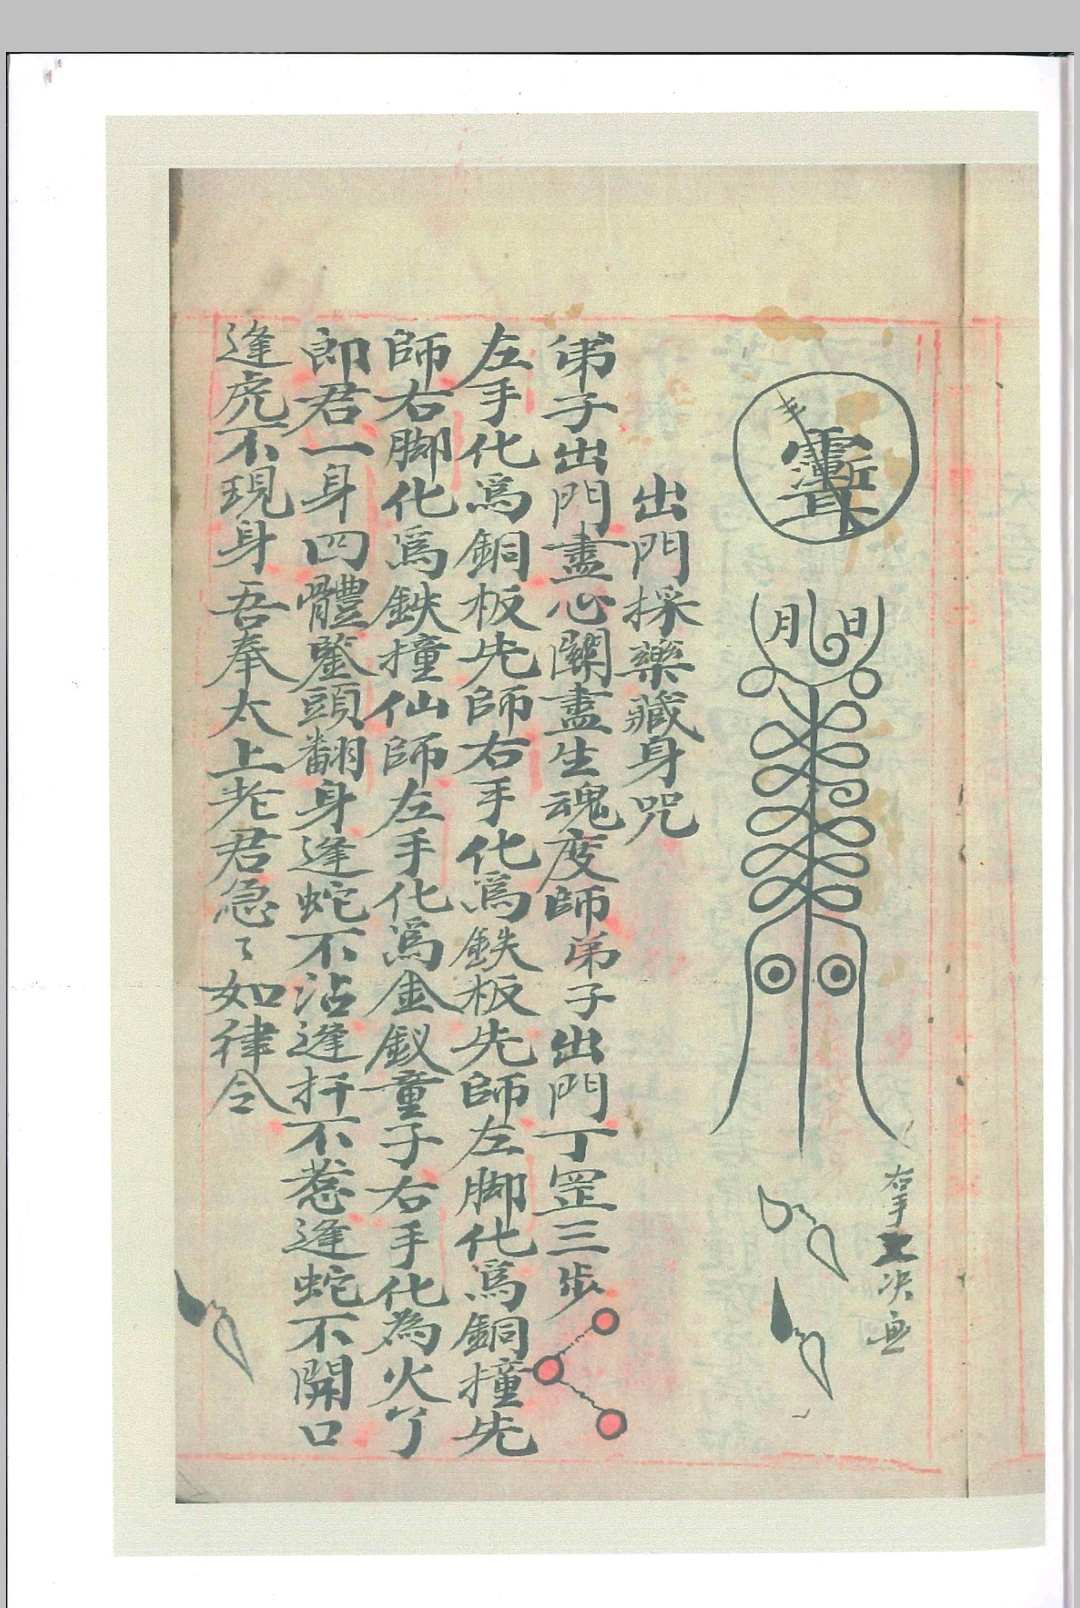 月 日
右手
出門採藥藏身咒
弟子出門盡心關盡生魂度師弟子出門丁罡三步
左手化爲銅板先師右手化爲鉄板先師左脚化爲銅撞先
師右脚化爲鉄撞仙師左手化爲金釵童子右手化為火丫
郎君一身四體鑒頭翻身逢蛇不沾逢扦不惹逢蛇不開口
逢虎不現身吾奉太上老君急〻如律令